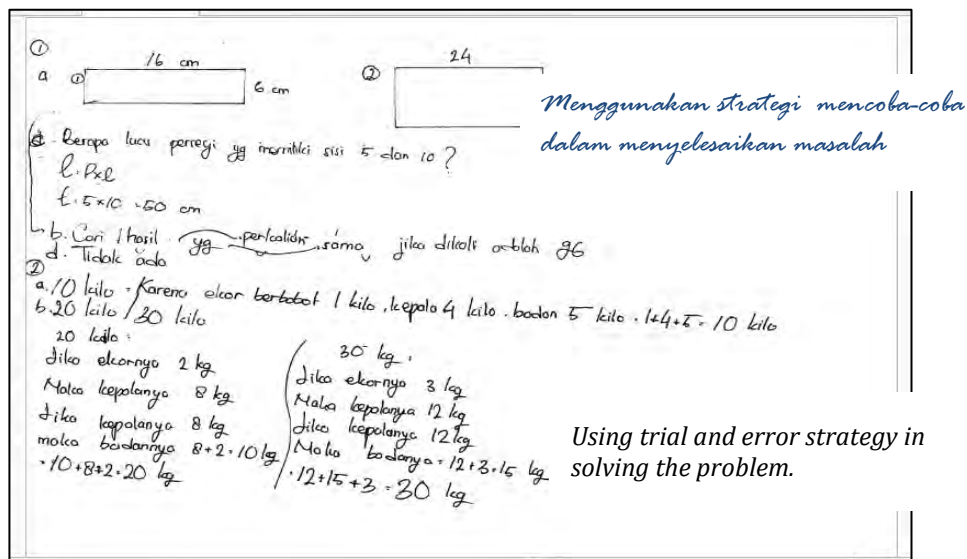 ①
16 cm
24
a ①
6 cm
②
Menggunakan strategi mencoba-coba
dalam menyelesaikan masalah
d. Berapa luas persegi yg memiliki sisi 5 dan 10?
l. Pxl
5×10 = 50 cm
b. Cari hasil yg perkalian sama jika dikali adalah 96
d. Tidak ada
②
a. 10 kilo = Karena ekor berbobot 1 kilo, kepala 4 kilo. badan 5 kilo. 1+4+5 = 10 kilo
b. 20 kilo / 30 kilo
20 kilo:
Jika ekornya 2 kg
Maka kepalanya 8 kg
Jika kepalanya 8 kg
maka badannya 8+2=10 kg
=10+8+2=20 kg
30 kg.
Jika ekornya 3 kg
Maka kepalanya 12 kg
Jika kepalanya 12 kg
Maka badanya = 12+3=15 kg
=12+15+3=30 kg
Using trial and error strategy in
solving the problem.